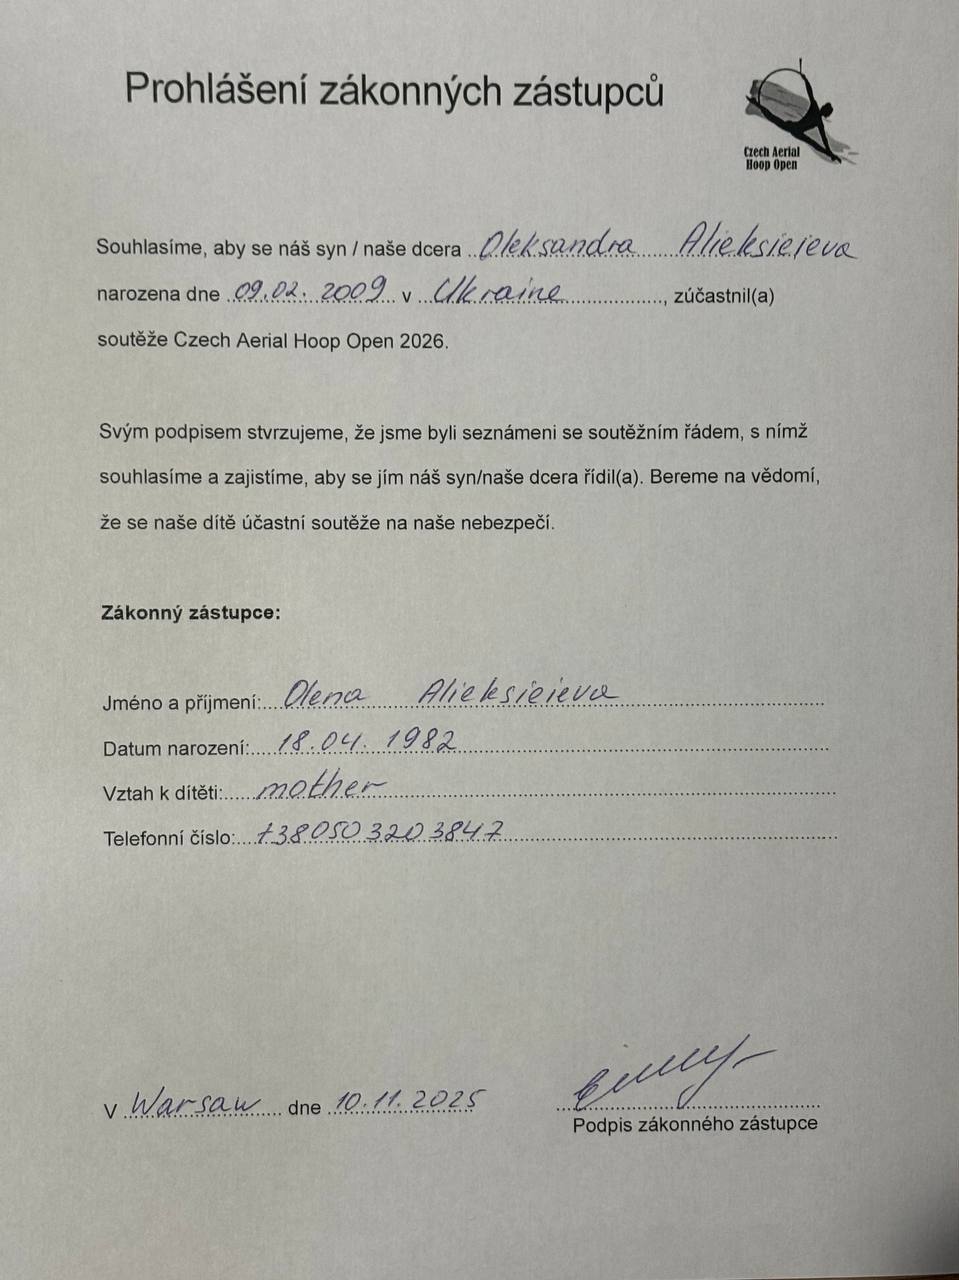 Prohlášení zákonných zástupců
Czech Aerial
Hoop Open
Souhlasíme, aby se náš syn / naše dcera ..Oleksandra......Alieksieieva
narozena dne ..09.02. 2009.. v ...Ukraine...................., zúčastnil(a)
soutěže Czech Aerial Hoop Open 2026.
Svým podpisem stvrzujeme, že jsme byli seznámeni se soutěžním řádem, s nímž
souhlasíme a zajistíme, aby se jím náš syn/naše dcera řídil(a). Bereme na vědomí,
že se naše dítě účastní soutěže na naše nebezpečí.
Zákonný zástupce:
Jméno a příjmení:....Olena.......Alieksieieva....................................
Datum narození:.....18.04. 1982..................................................................
Vztah k dítěti:......mother................................................................................
Telefonní číslo:....+380503203847............................................................
V ..Warsaw.... dne ..10.11.2025
Podpis zákonného zástupce